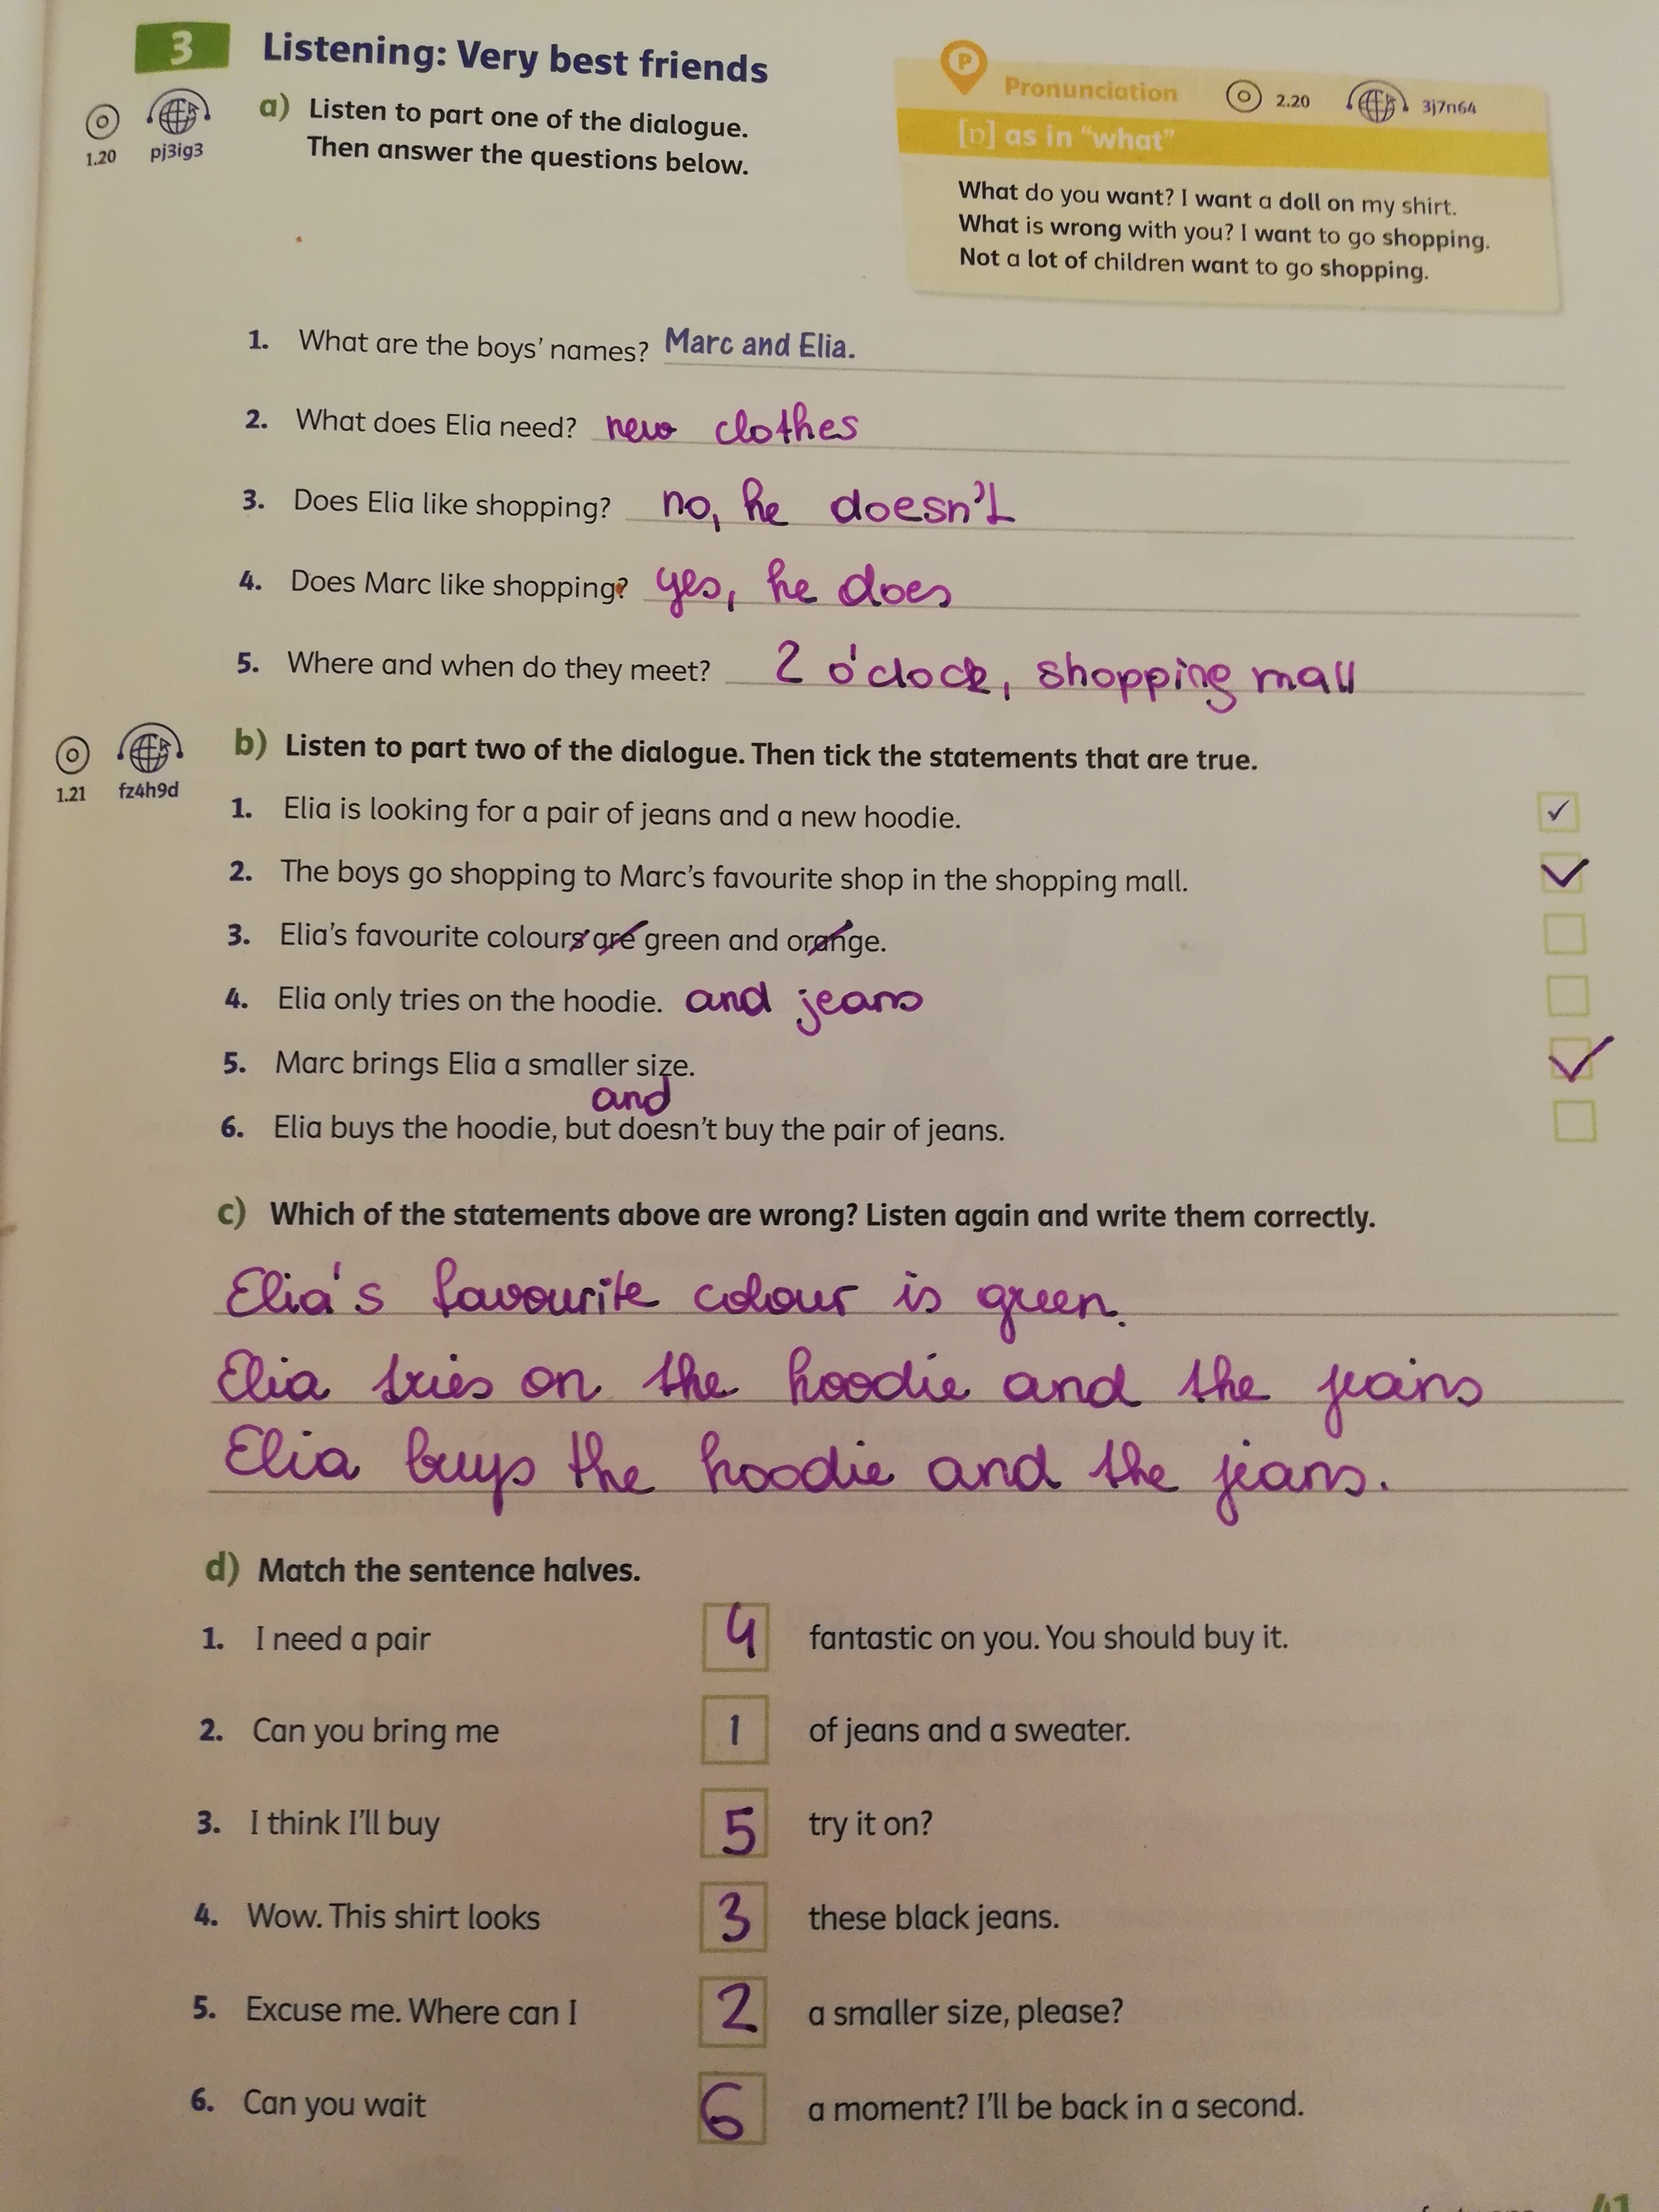 3 Listening: Very best friends
1.20 pj3ig3
a) Listen to part one of the dialogue.
Then answer the questions below.
P Pronunciation 2.20 3j7n64
[ɒ] as in "what"
What do you want? I want a doll on my shirt.
What is wrong with you? I want to go shopping.
Not a lot of children want to go shopping.
1. What are the boys' names? Marc and Elia.
2. What does Elia need? new clothes
3. Does Elia like shopping? no, he doesn't
4. Does Marc like shopping? yes, he does
5. Where and when do they meet? 2 o'clock, shopping mall
1.21 fz4h9d
b) Listen to part two of the dialogue. Then tick the statements that are true.
1. Elia is looking for a pair of jeans and a new hoodie. ✓
2. The boys go shopping to Marc's favourite shop in the shopping mall. ✓
3. Elia's favourite colours are green and orange.
4. Elia only tries on the hoodie. and jeans
5. Marc brings Elia a smaller size. ✓
and
6. Elia buys the hoodie, but doesn't buy the pair of jeans.
c) Which of the statements above are wrong? Listen again and write them correctly.
Elia's favourite colour is green.
Elia tries on the hoodie and the jeans
Elia buys the hoodie and the jeans.
d) Match the sentence halves.
1. I need a pair 4 fantastic on you. You should buy it.
2. Can you bring me 1 of jeans and a sweater.
3. I think I'll buy 5 try it on?
4. Wow. This shirt looks 3 these black jeans.
5. Excuse me. Where can I 2 a smaller size, please?
6. Can you wait 6 a moment? I'll be back in a second.
41